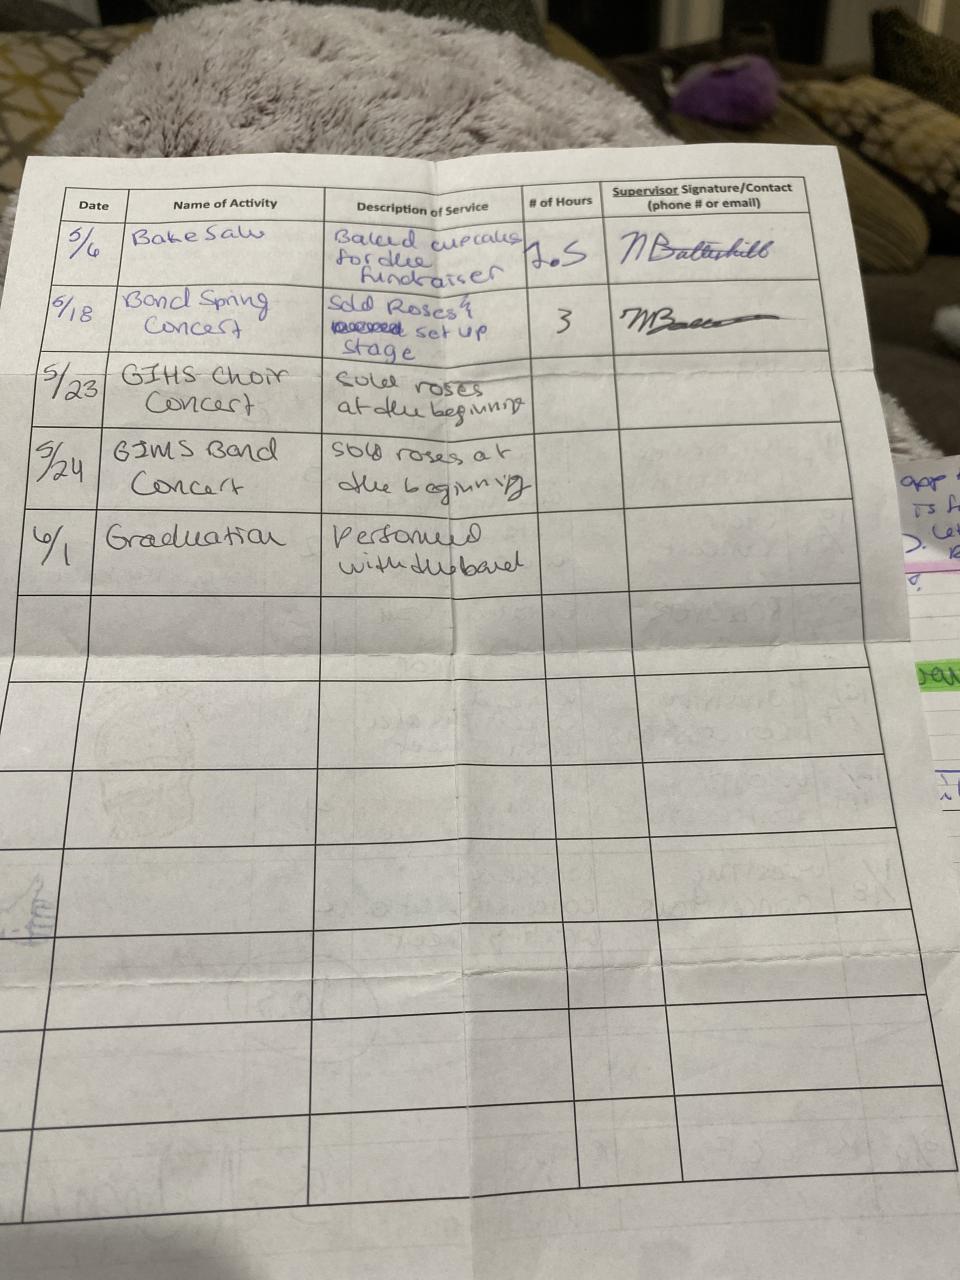 Date Name of Activity Description of Service # of Hours Supervisor Signature/Contact
(phone # or email)
5/6 Bake Sale Baked cupcakes
for the
fundraiser
5/18 Band Spring
Concert
Sold Roses &
set up
stage
3
5/23 GIHS Choir
Concert
Sold roses
at the beginning
5/24 GIMS Band
Concert
Sold roses at
the beginning
6/1 Graduation Performed
with the band
app